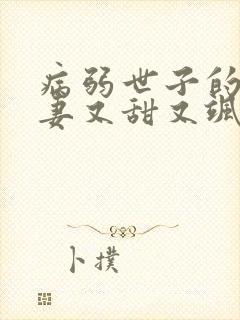 病弱世子的
妻又甜又飒
卜撲